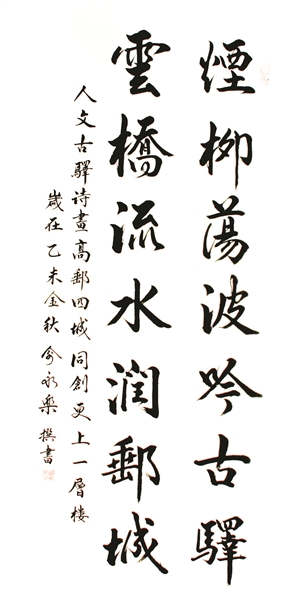 煙柳蕩波吟古驛
雲橋流水潤郵城
人文古驛诗畫高郵四城同創更上一層楼
歲在乙未金秋俞永樂撰書